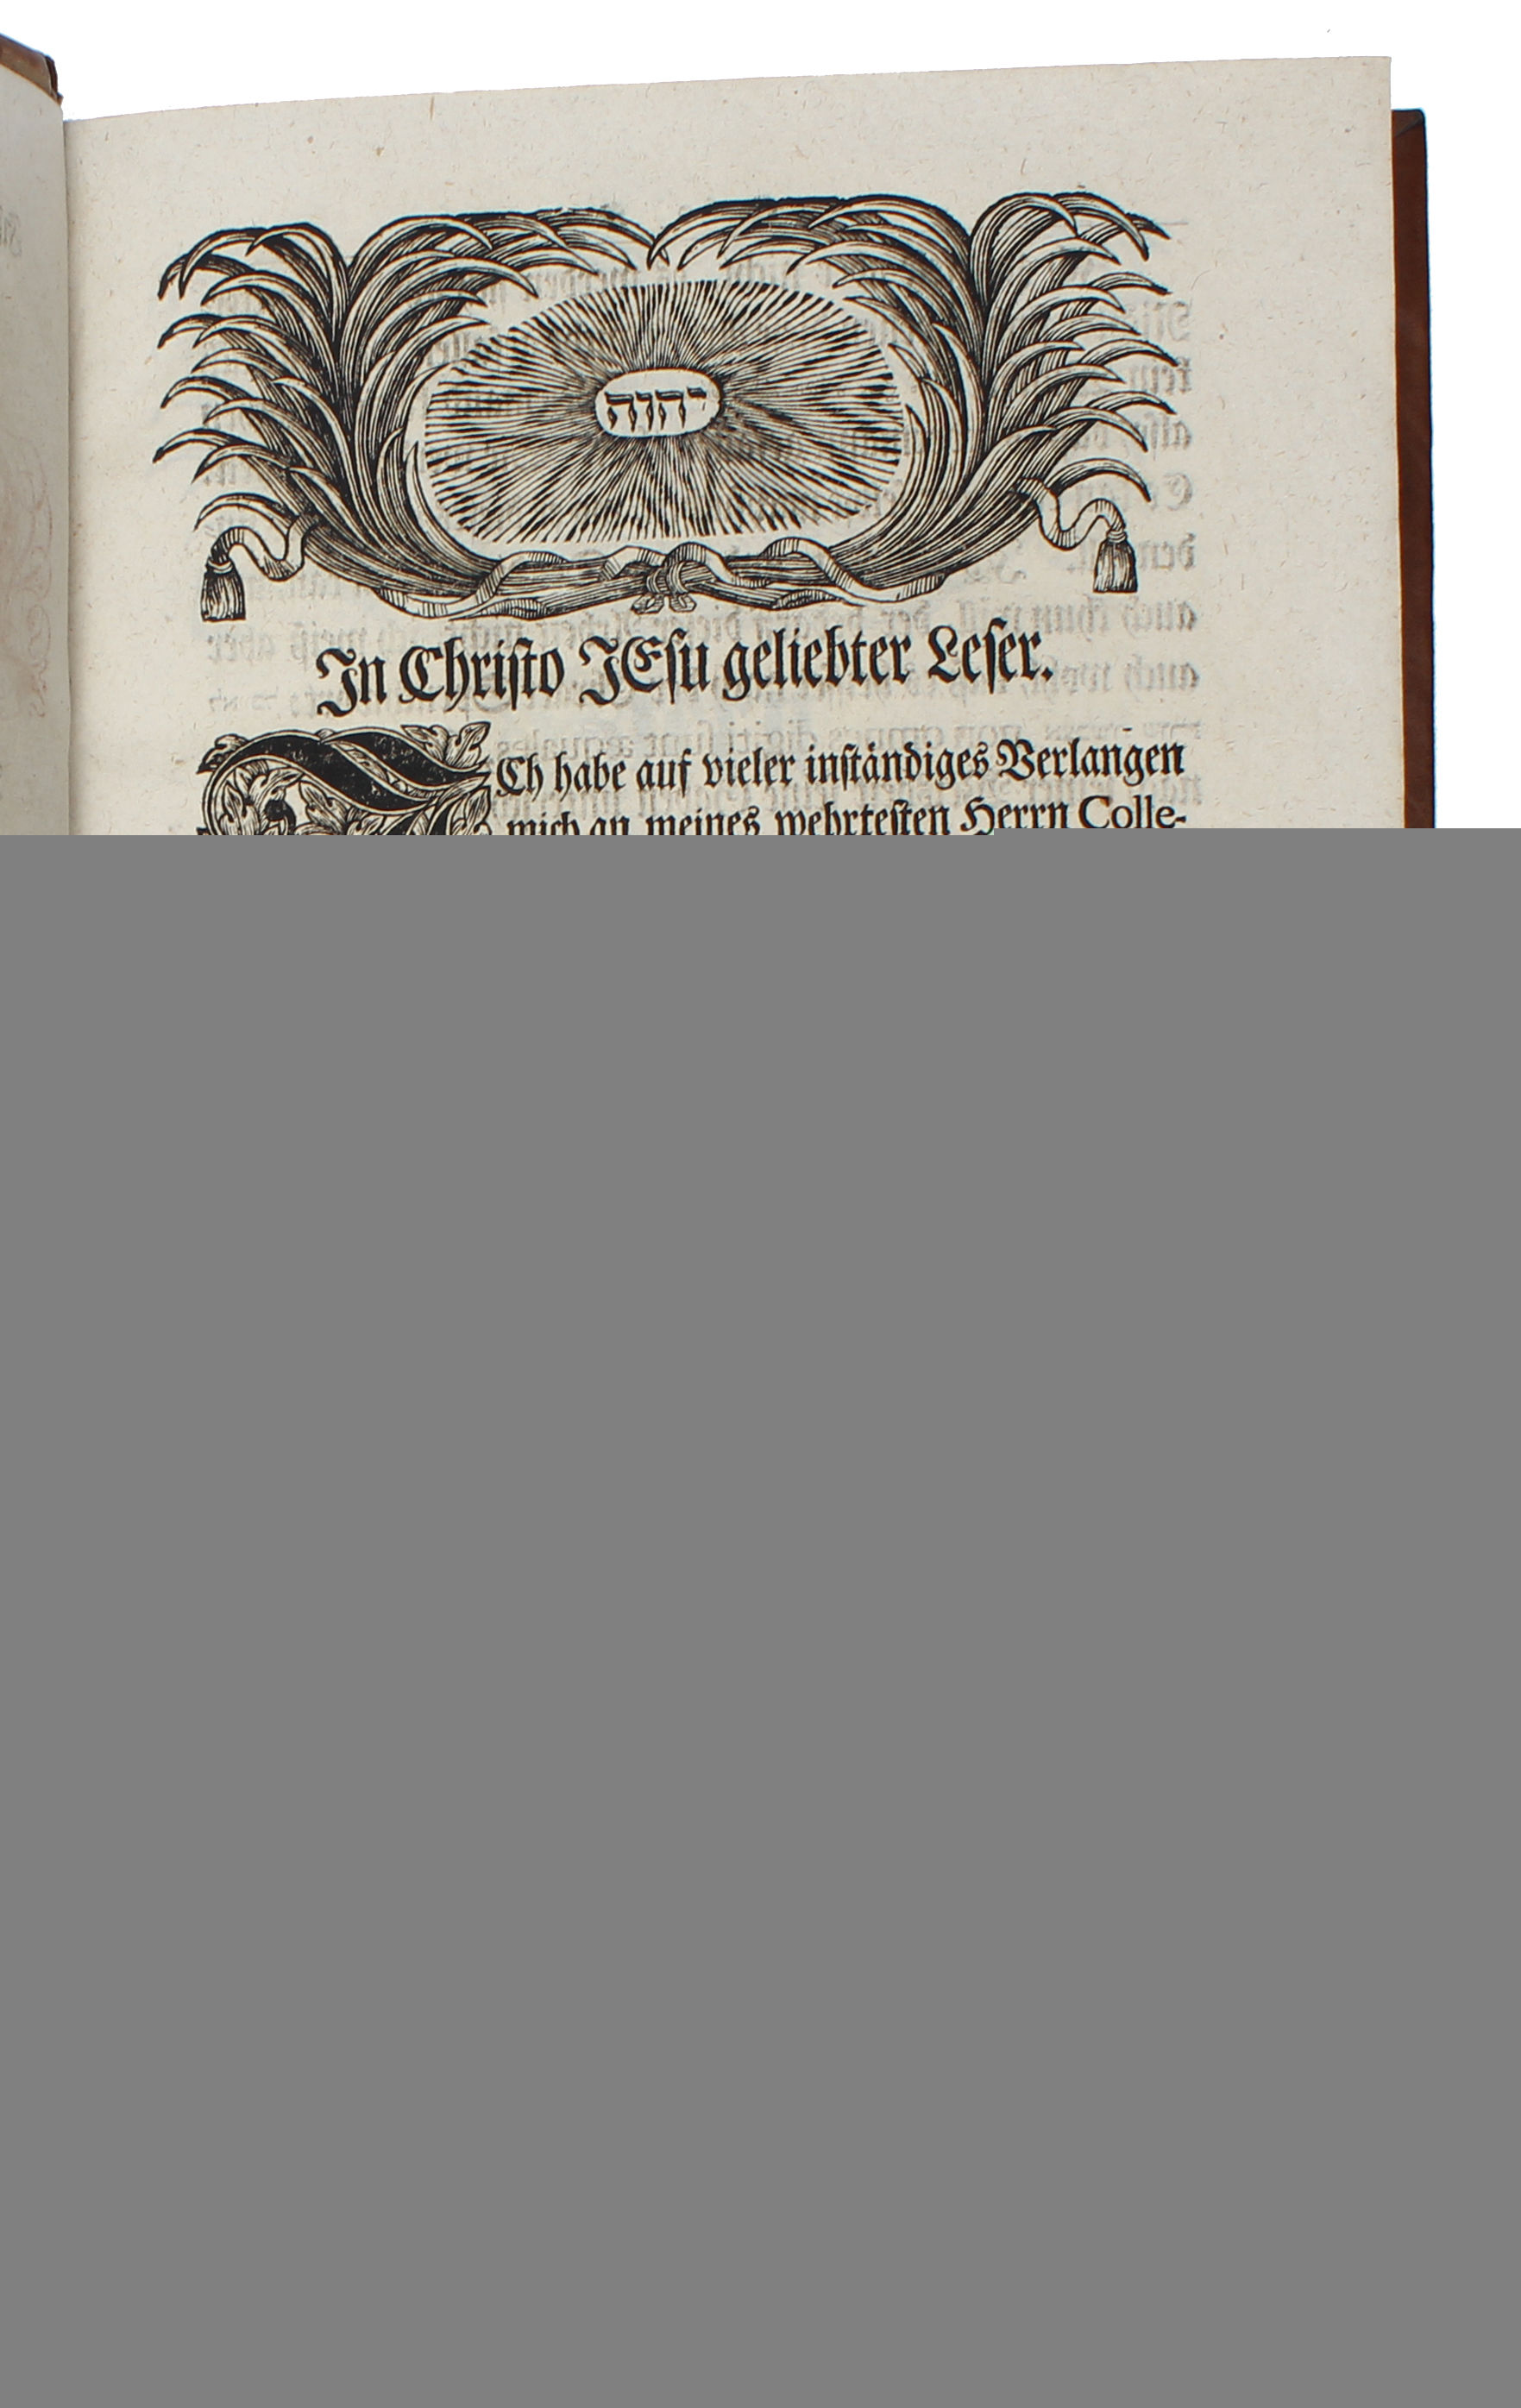 יהוה
In Christo JEsu geliebter Leser.
ICh habe auf vieler inständiges Verlangen
mich an meines wehrtesten Herrn Colle-